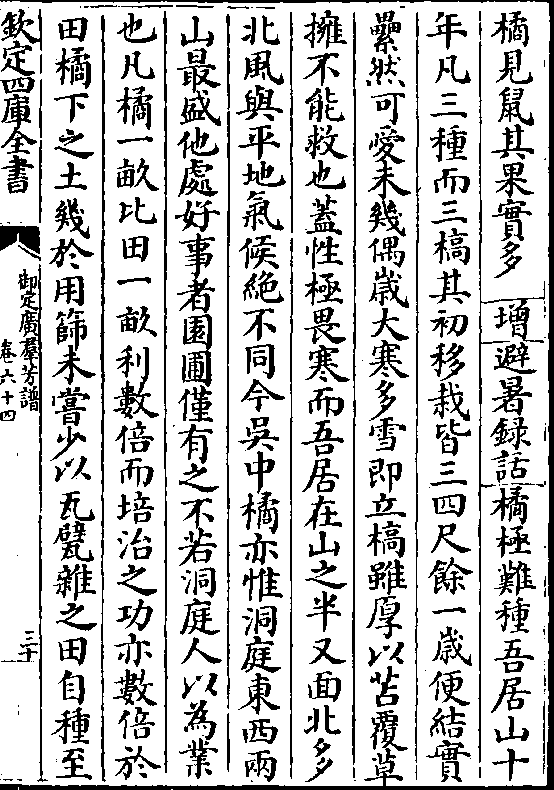 橘見鼠其果實多　增避暑録話橘極難種吾居山十
年凡三種而三槁其初移栽皆三四尺餘一歲便結實
纍然可愛未幾偶歲大寒多雪即立槁雖厚以苫覆草
擁不能救也蓋性極畏寒而吾居在山之半又面北多
北風與平地氣候絶不同今吳中橘亦惟洞庭東西兩
山最盛他處好事者園圃僅有之不若洞庭人以為業
也凡橘一畝比田一畝利數倍而培治之功亦數倍於
田橘下之土幾於用篩未嘗少以瓦甓雜之田自種至
欽定四庫全書
御定廣羣芳譜
卷六十四
三十